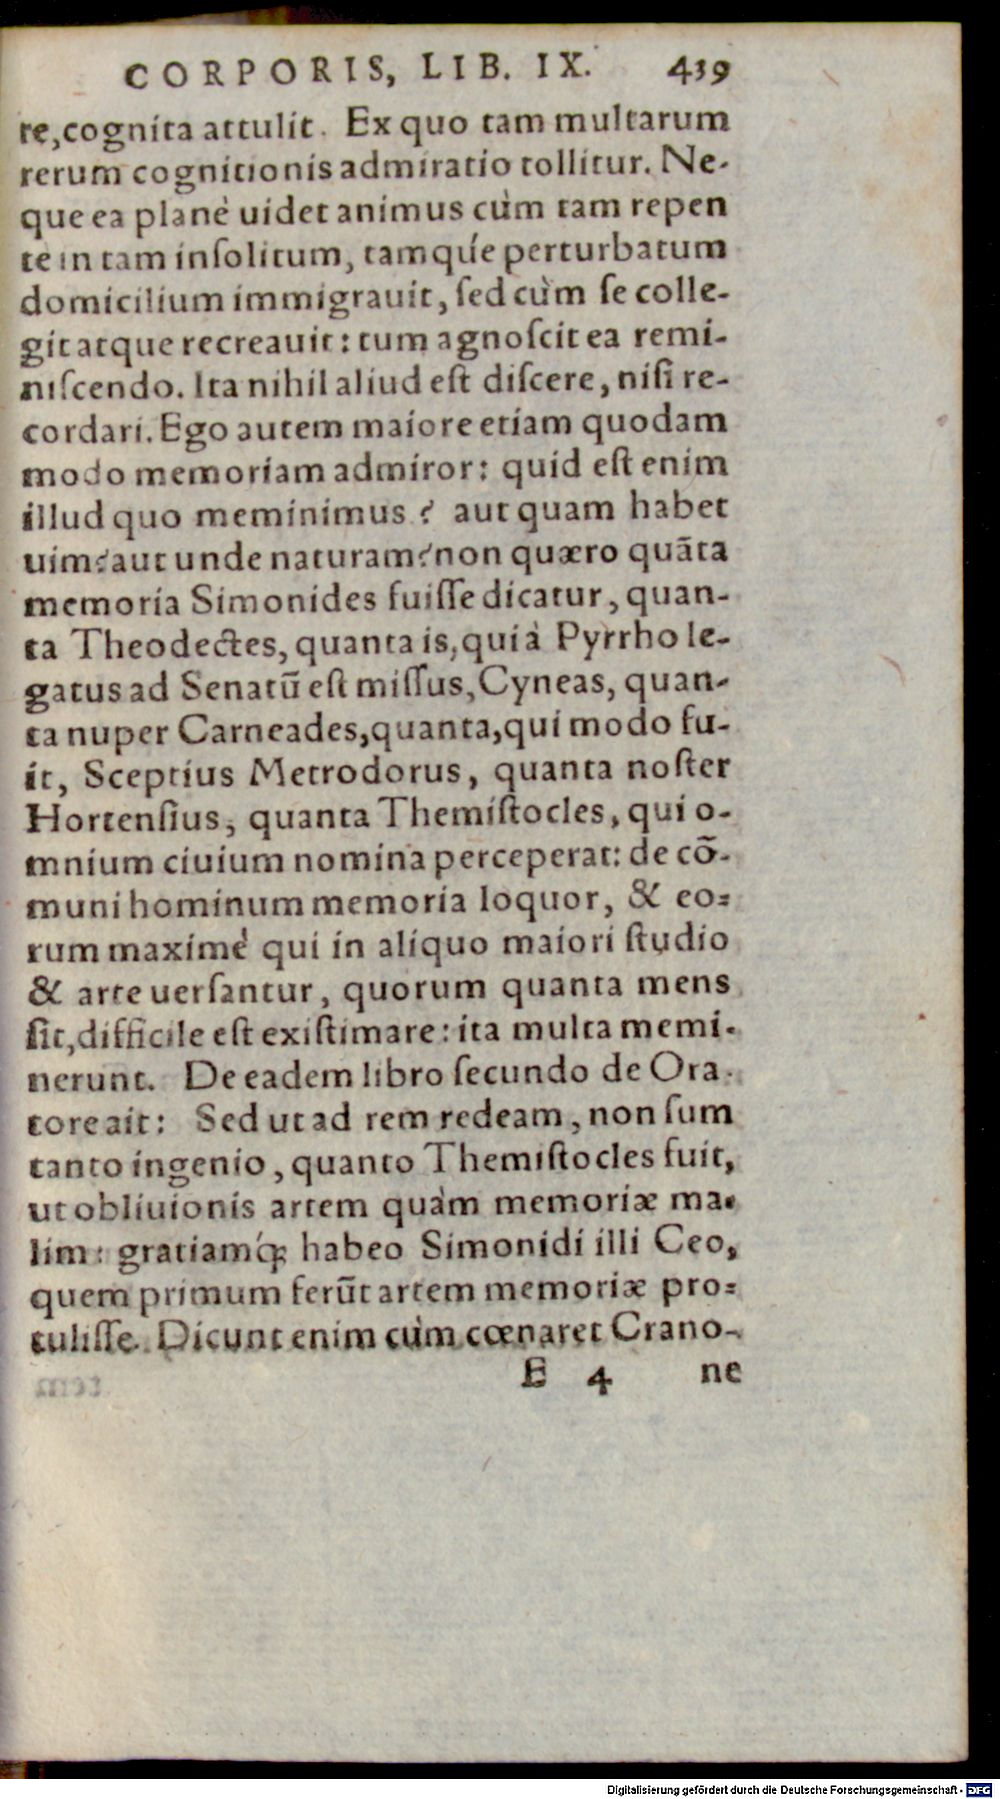 CORPORIS, LIB. IX. 439
re,cognita attulit. Ex quo tam multarum
rerum cognitionis admiratio tollitur. Ne-
que ea planè uidet animus cùm tam repen
te in tam inſolitum, tamqúe perturbatum
domicilium immigrauit, ſed cùm ſe colle-
git atque recreauit: tum agnoſcit ea remi-
niſcendo. Ita nihil aliud eſt diſcere, niſi re-
cordari. Ego autem maiore etiam quodam
modo memoriam admiror: quid eſt enim
illud quo meminimus? aut quam habet
uim? aut unde naturam? non quæro quãta
memoria Simonides fuiſſe dicatur, quan-
ta Theodectes, quanta is, qui à Pyrrho le-
gatus ad Senatũ eſt miſſus, Cyneas, quan-
ta nuper Carneades, quanta, qui modo fu-
it, Sceptius Metrodorus, quanta noſter
Hortenſius, quanta Themiſtocles, qui o-
mnium ciuium nomina perceperat: de cõ-
muni hominum memoria loquor, & eo=
rum maximè qui in aliquo maiori ſtudio
& arte uerſantur, quorum quanta mens
ſit, difficile eſt exiſtimare: ita multa memi-
nerunt. De eadem libro ſecundo de Ora-
tore ait: Sed ut ad rem redeam, non ſum
tanto ingenio, quanto Themiſtocles fuit,
ut obliuionis artem quàm memoriæ ma-
lim: gratiamq́; habeo Simonidi illi Ceo,
quem primum ferũt artem memoriæ pro=
tuliſſe. Dicunt enim cùm cœnaret Crano-
E 4 ne
Digitalisierung gefördert durch die Deutsche Forschungsgemeinschaft - DFG